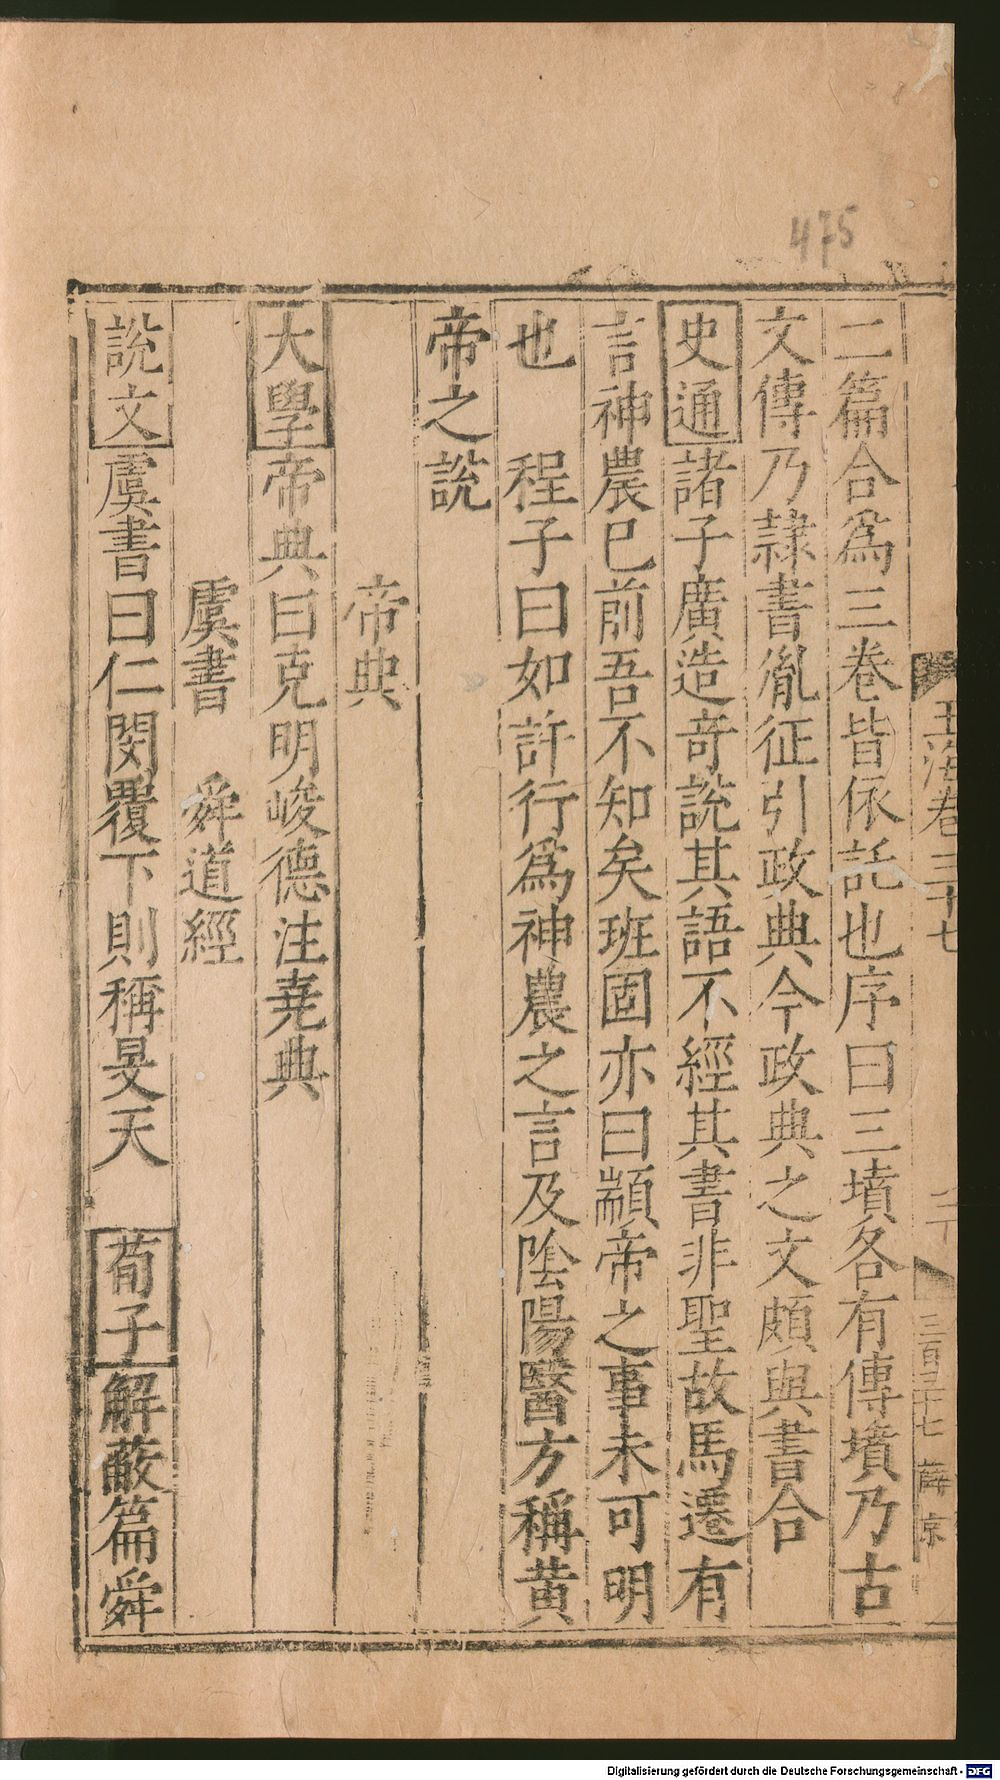 475
二篇合爲三卷皆依託也序曰三墳各有傳墳乃古
文傳乃隷書胤征引政典今政典之文頗與書合
史通諸子廣造奇說其語不經其書非聖故馬遷有
言神農巳前吾不知矣班固亦曰顓帝之事未可明
也　程子曰如許行爲神農之言及陰陽醫方稱黄
帝之說
帝典
大學帝典曰克明峻德注堯典
虞書　舜道經
說文虞書曰仁閔覆下則稱旻天　荀子解蔽篇舜
玉海卷三十七
三百三十七　薛京
Digitalisierung gefördert durch die Deutsche Forschungsgemeinschaft - DFG